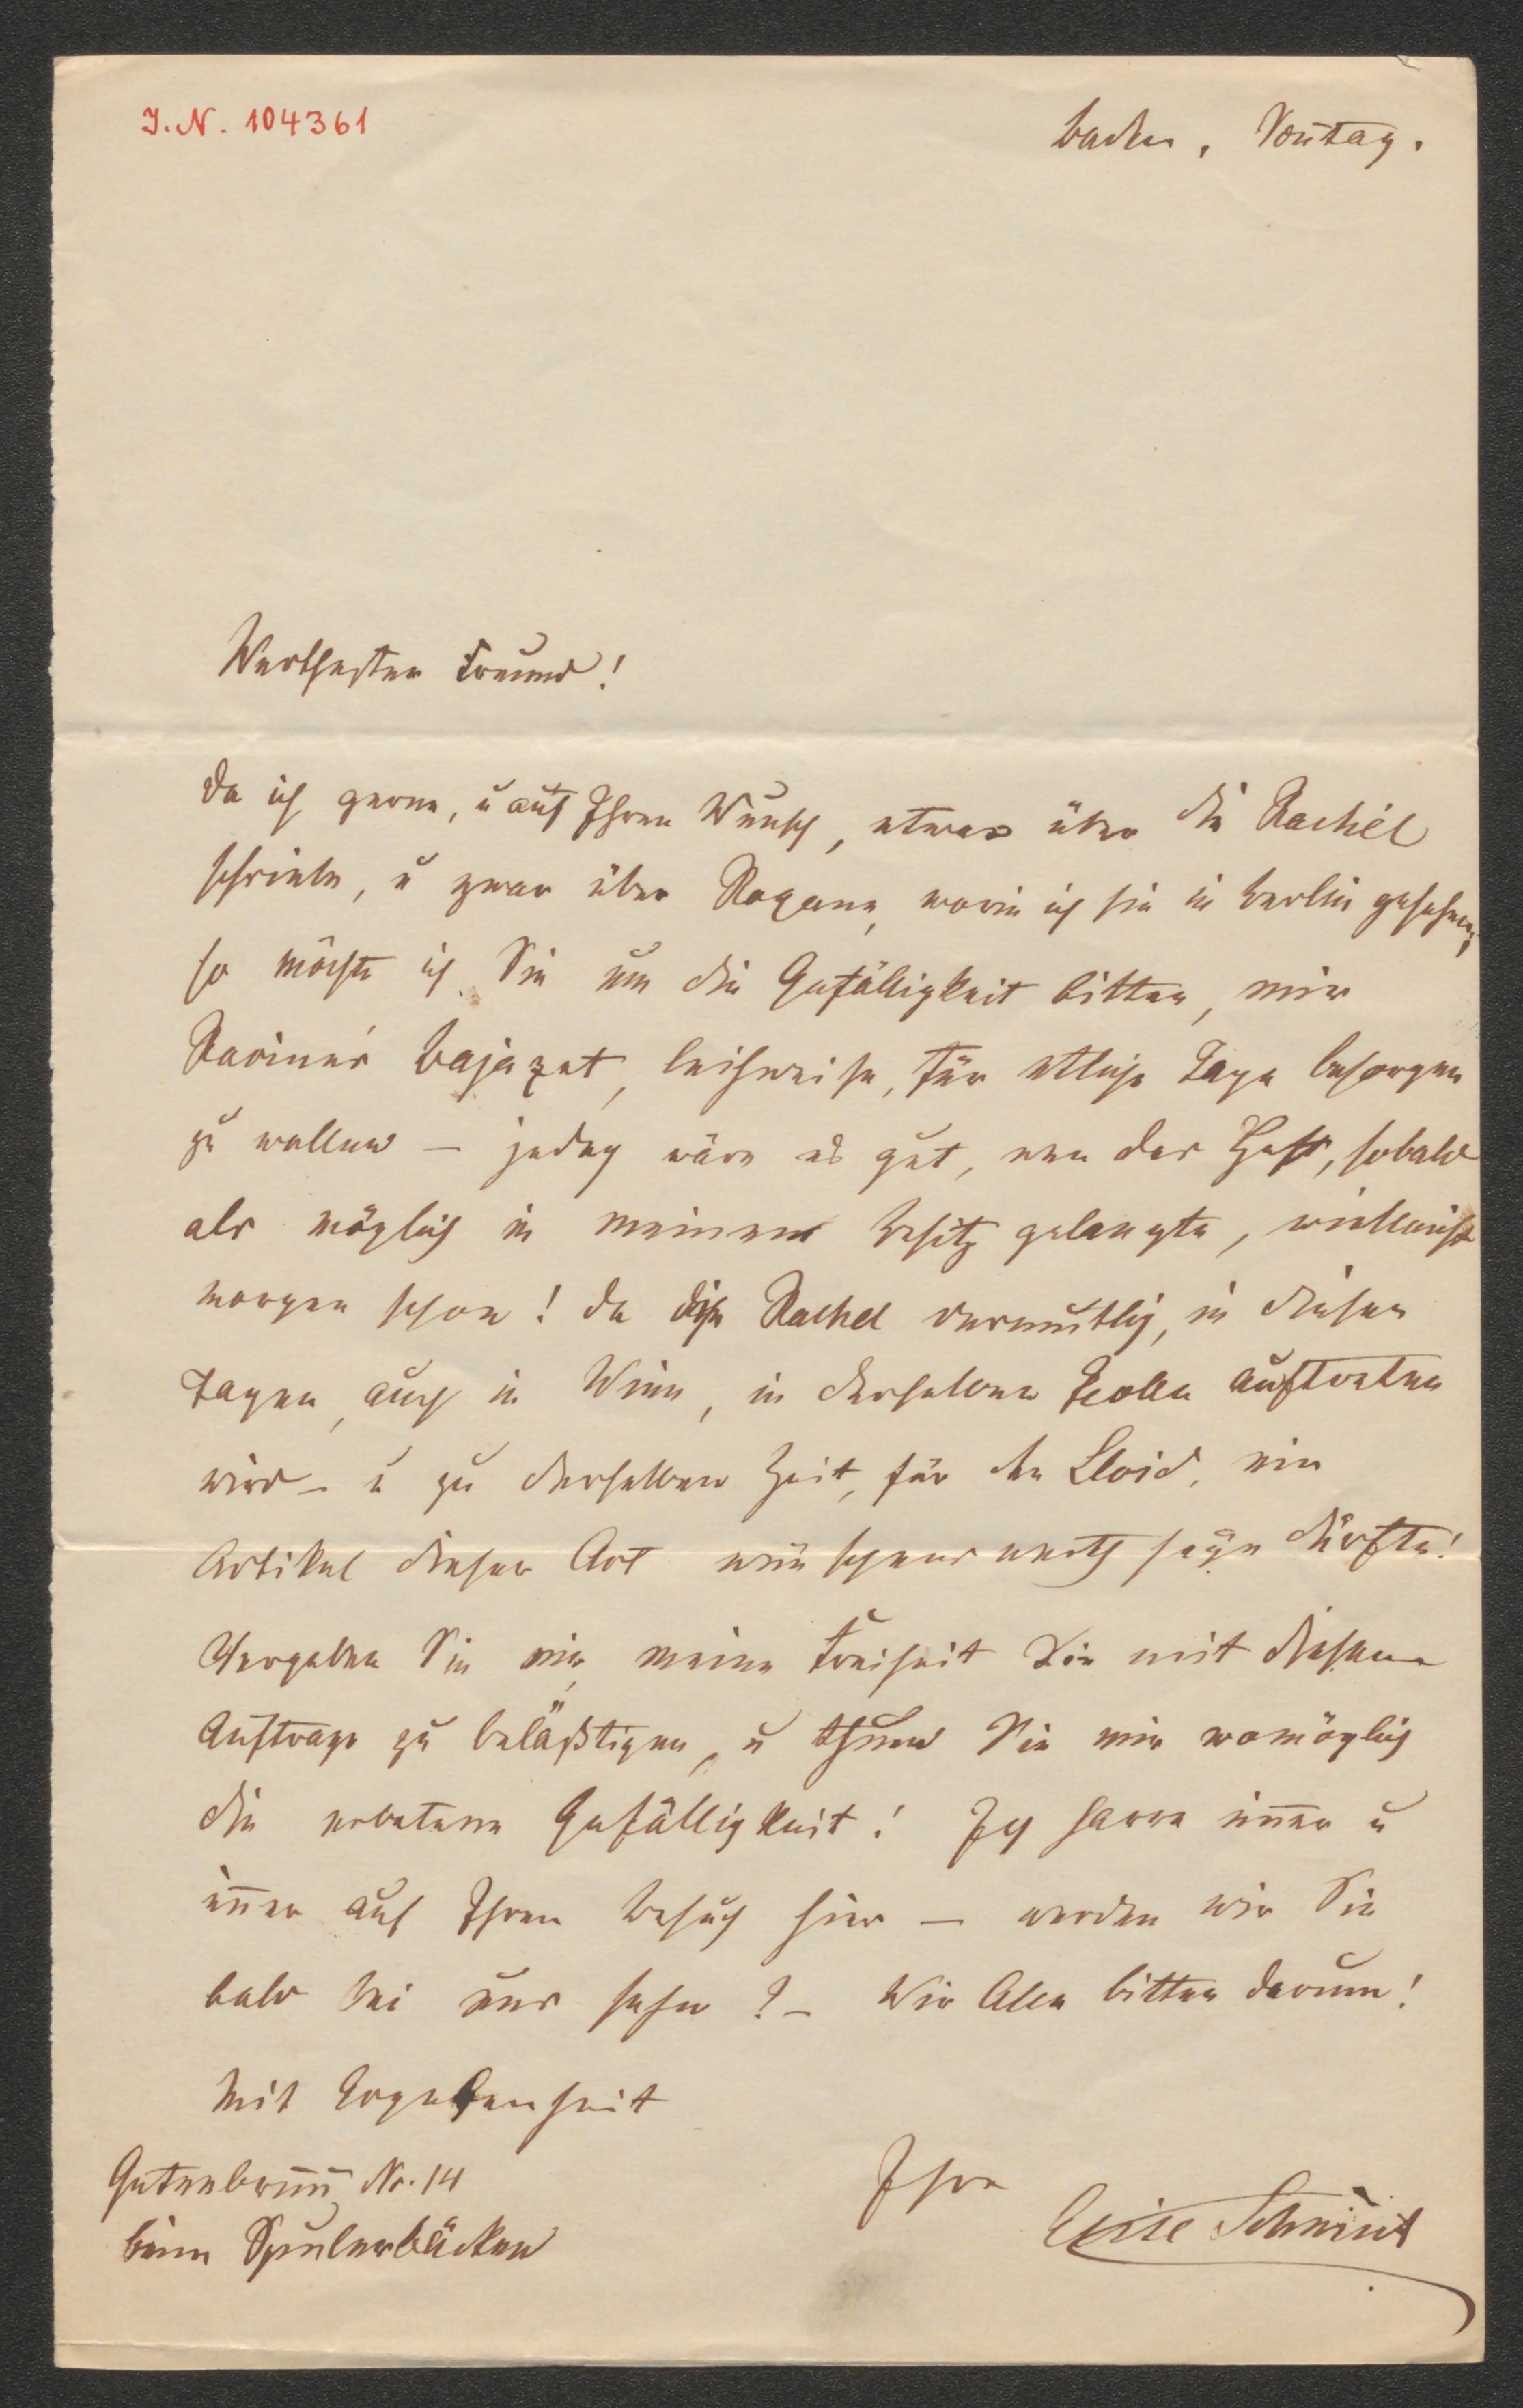 I.N. 104361
Baden, Sontag.
Werthester Freund!
Da ich gerne, u auf Ihren Wunsch, etwas über die Rachél
schriebe, u zwar über Roxane, worin ich sie in Berlin gesehen,
so möchte ich Sie um die Gefälligkeit bitten, mir
Racine's Bajazet, leihweise, für etliche Tage besorgen
zu wollen – jedoch wäre es gut, wen das Heft, sobald
als möglich in meinem Besitz gelangte, vielleicht
morgen schon! Da die Rachel vermuthlich, in diesen
Tagen, auch in Wien, in derselben Rolle auftreten
wird – u zu derselben Zeit, für den Lloid, ein
Artikel dieser Art wünschenswerth seÿn dürfte!
Vergeben Sie mir meine Freiheit Sie mit diesem
Auftrage zu beläßtigen, u thuen Sie mir womöglich
die erbetene Gefälligkeit! Ich harre imer u
imer auf Ihren Besuch hier – werden wir Sie
bald bei uns sehen? – Wir Alle bitten darum!
Mit Ergebenheit
Ihre
Elise Schmidt
Gutenbrun Nr. 14
beim Spulerbäcken